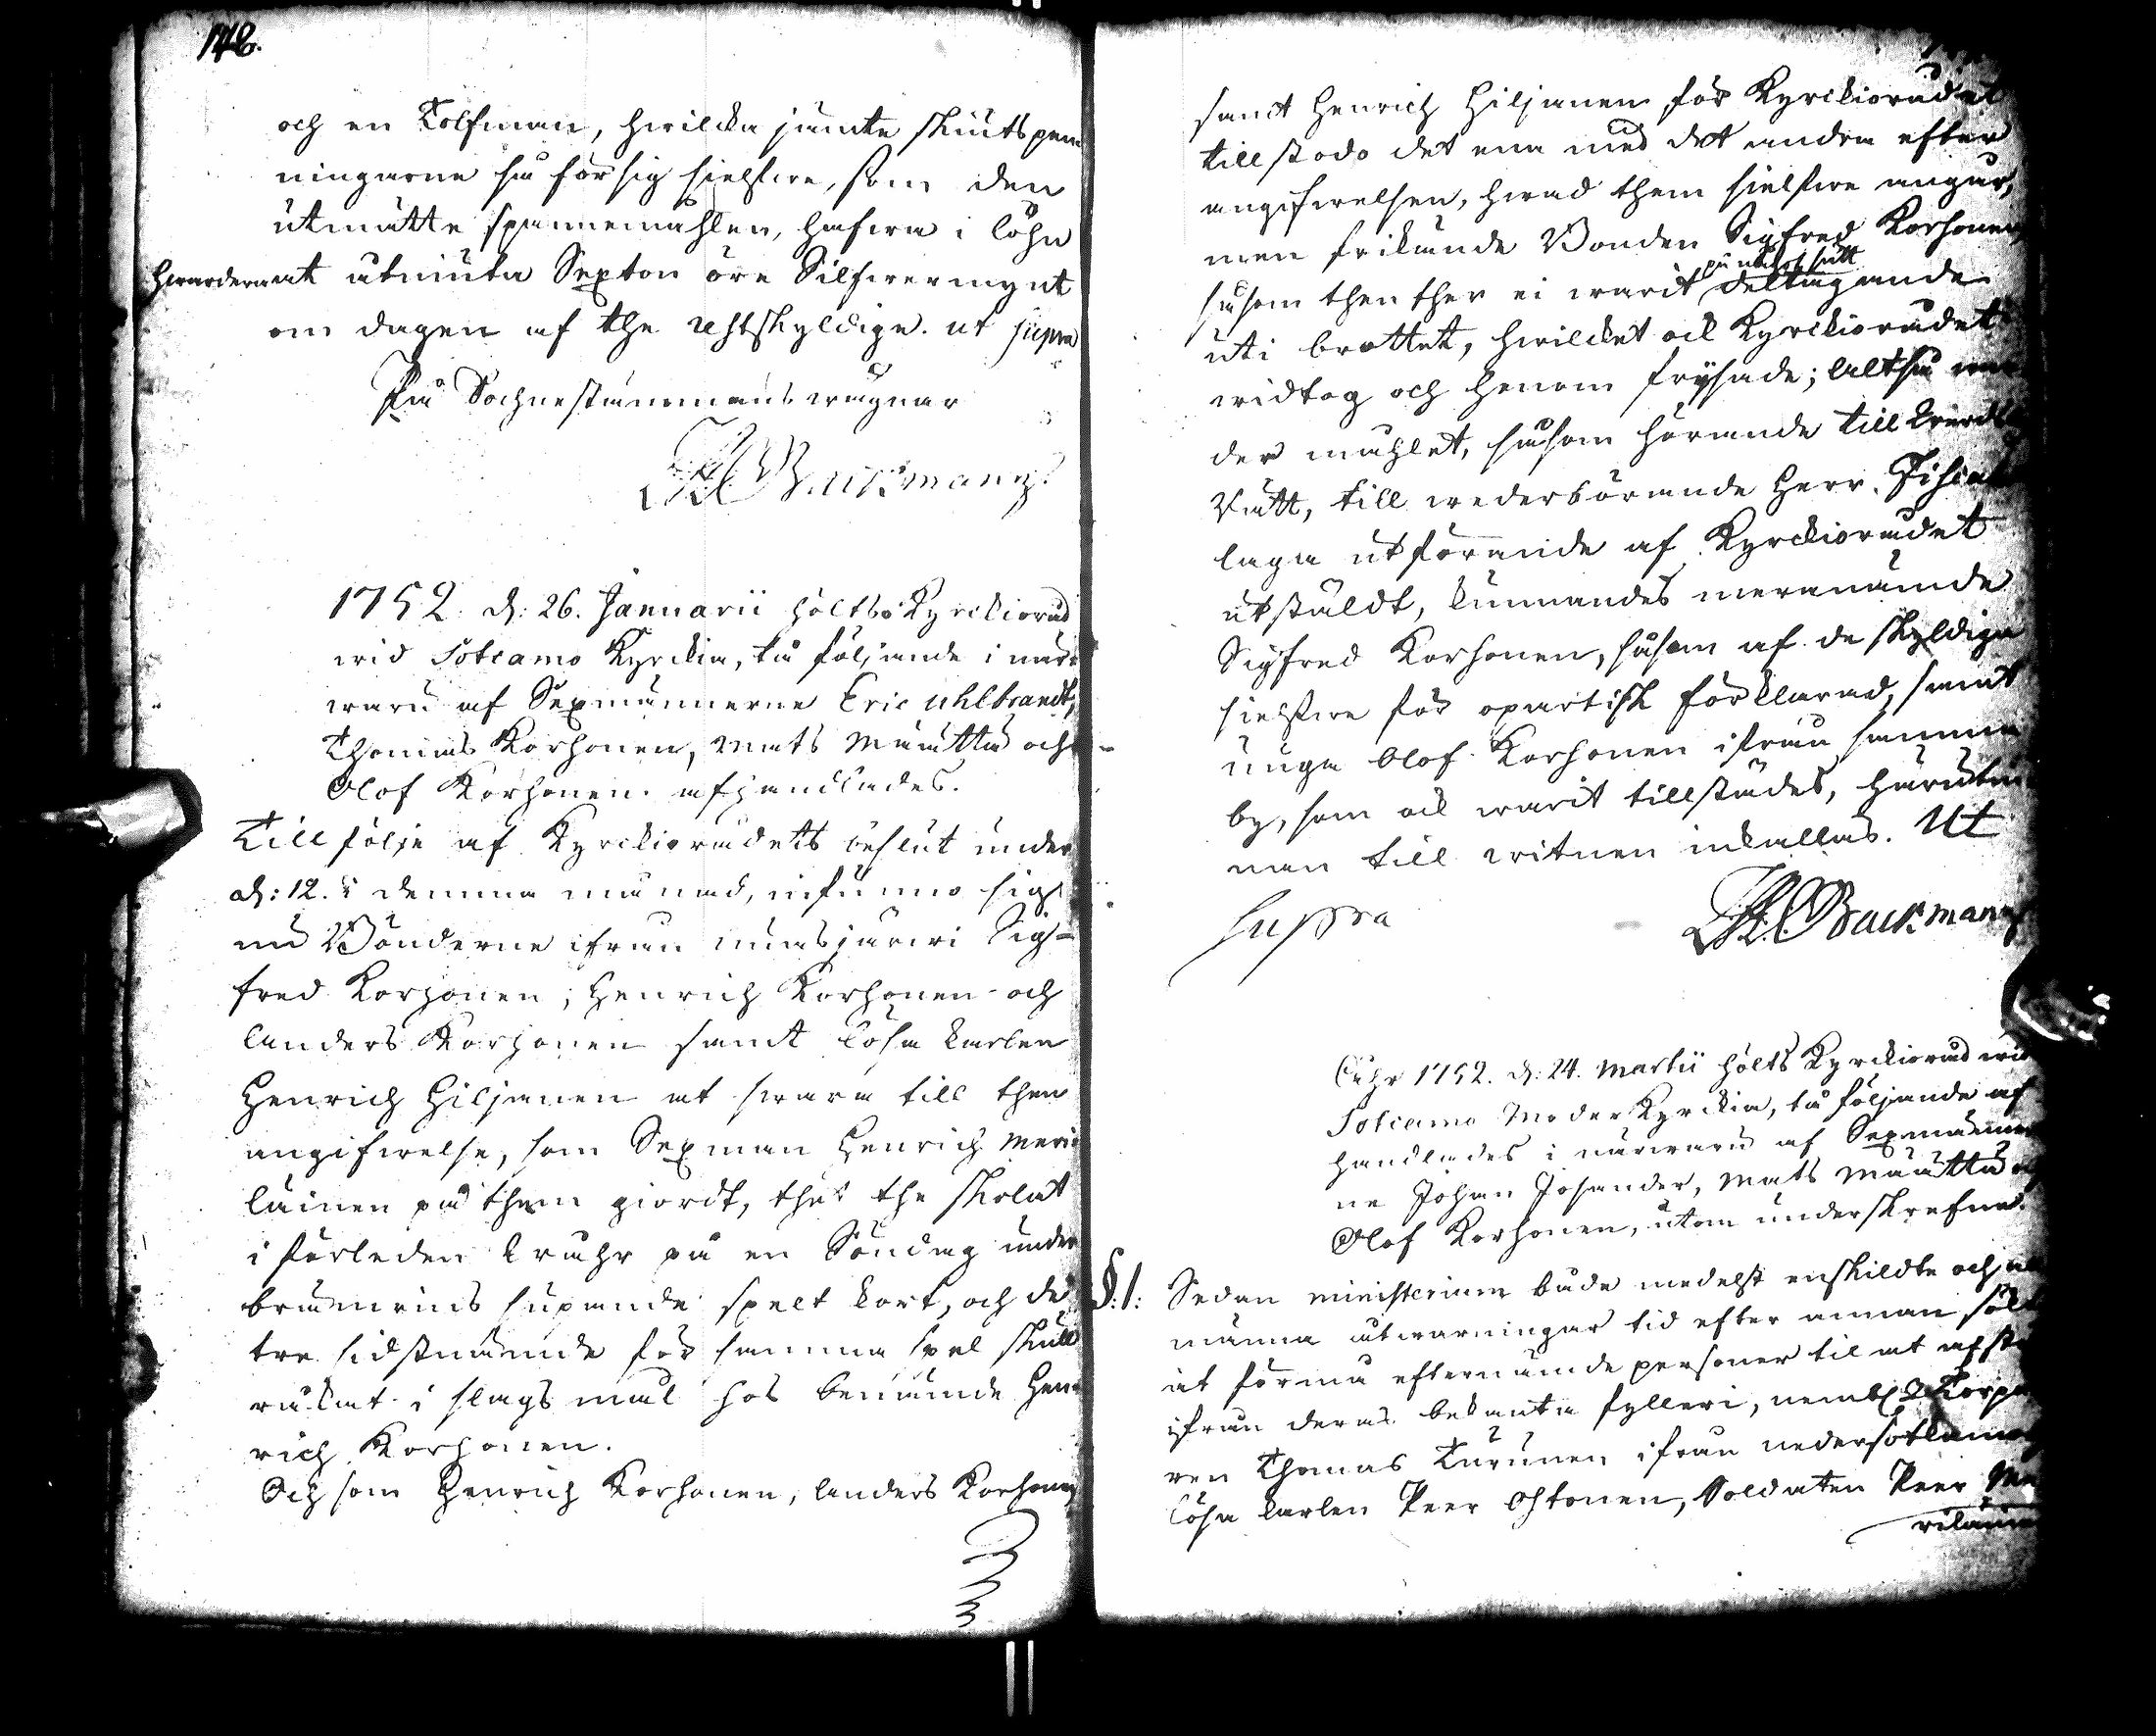 148.
och en Tolfman, hwilcka jämte skiutspen
ningarne så för sig sielfwe, som den
utmätte spannemåhlen, hafwa i löhn
hwardera at utniuta Sexton öre Silfwermynt
om dagen af the rhtskyldige. ut supra
På Sochnestämmans wägnar
H Backmann
1752. d: 26. Januarii höltes Kyrckioråd
wid Sotcamo Kyrckia, tå följande i när
waru af Sexmännerne Eric Ahlbrandt,
Thomas Korhonen, Mats Määttä och
Olof Korhonen afhandlades.
Till följe af Kyrckiorådets beslut under
d: 12. i denna månad, infunno sig
nu Bönderne ifrån Nuasjärwi Sig-
fred Korhonen, Henrich Korhonen och
Anders Korhonen samt lösa karlen
Henrich Hiljanen at swara till then
angifwelse, som Sexman Henrich Meri
läinen på them giordt, thet the skolat
i förleden åhr på en Söndag under
brännwins supande spelt kort, och de
tre sidstnämde för samma spel skull
råkat i slagsmål hos benämde Hen
rich Korhonen.
Och som Henrich Korhonen, Anders Korhonen
samt Henrich Hiljanen för Kyrckiorådet
tillstodo det ena med det andra efter
angifwelsen, hwad them sielfwe angår,
men frikände Bonden Sigfred Korhonen,
på något sätt
såsom then ther ei warit deltagande
uti brottet, hwilcket ock Kyrckiorådet
widtog och honom frijsade; Altså war
der måhlet, såsom hörande till
Rätt, till wederbörande Herr Fiscal
laga utförande af Kyrckiorådet
utstäldt, kunnandes meranämde
Sigfred Korhonen, såsom af de skyldige
sielfwe för opartisk förklarad, samt
unga Olof Korhonen ifrån samma
by, som ock warit tillstädes, härutin
nan till witnen inkallas. Ut
supra
H Backmann
Åhr 1752. d: 24. Martii hölts Kyrckioråd wid
Sotcamo Moder Kyrckia, tå följande af
handlades i närwaru af Sexmänner
ne Johan Josander, Mats Määttä och
Olof Korhonen, utom underskrefne.
§: 1: Sedan Ministerium både medelst enskildte och all
männa utwarningar tid efter annan sökt
at förmå efternämde personer til at afstå
ifrån deras bekanta fylleri, neml: Torpa
ren Thomas Turunen ifrån Nedersotkamo
lösa karlen Peer Ohtonen, Soldaten Peer Me
riläinen